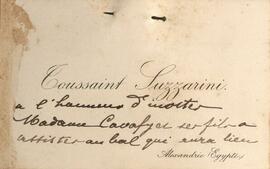 Toussaint Suzzarini.
a l'honneur d'inviter
Madame Cavafy et ses fils a
assister au bal qui aura lieu
Alexandrie (Egypte)